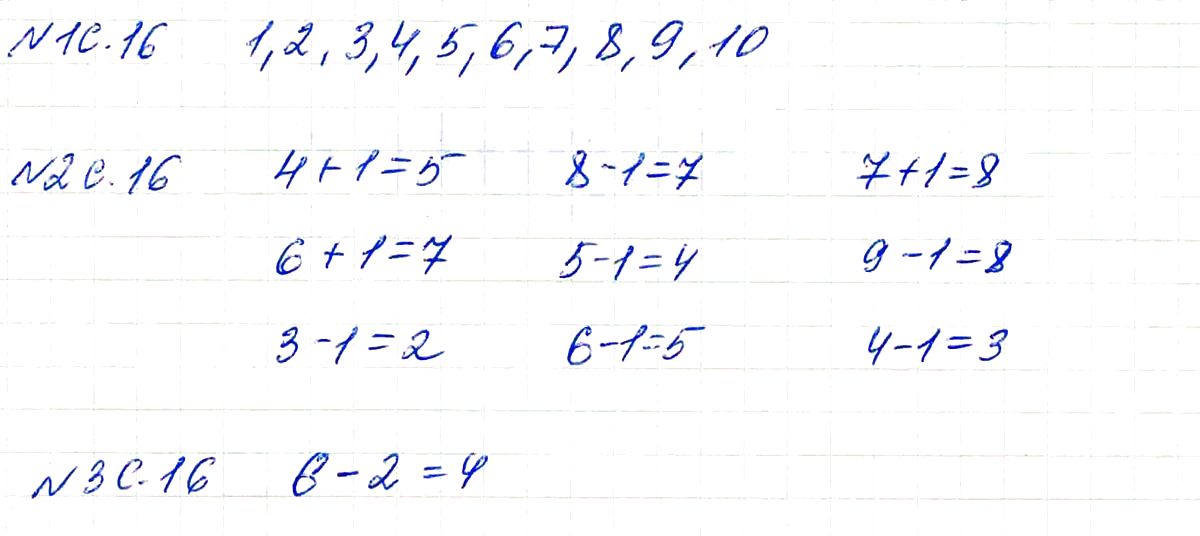 №1 с.16 1, 2, 3, 4, 5, 6, 7, 8, 9, 10
№2 с.16 4+1=5 8-1=7 7+1=8
6+1=7 5-1=4 9-1=8
3-1=2 6-1=5 4-1=3
№3 с.16 6-2=4